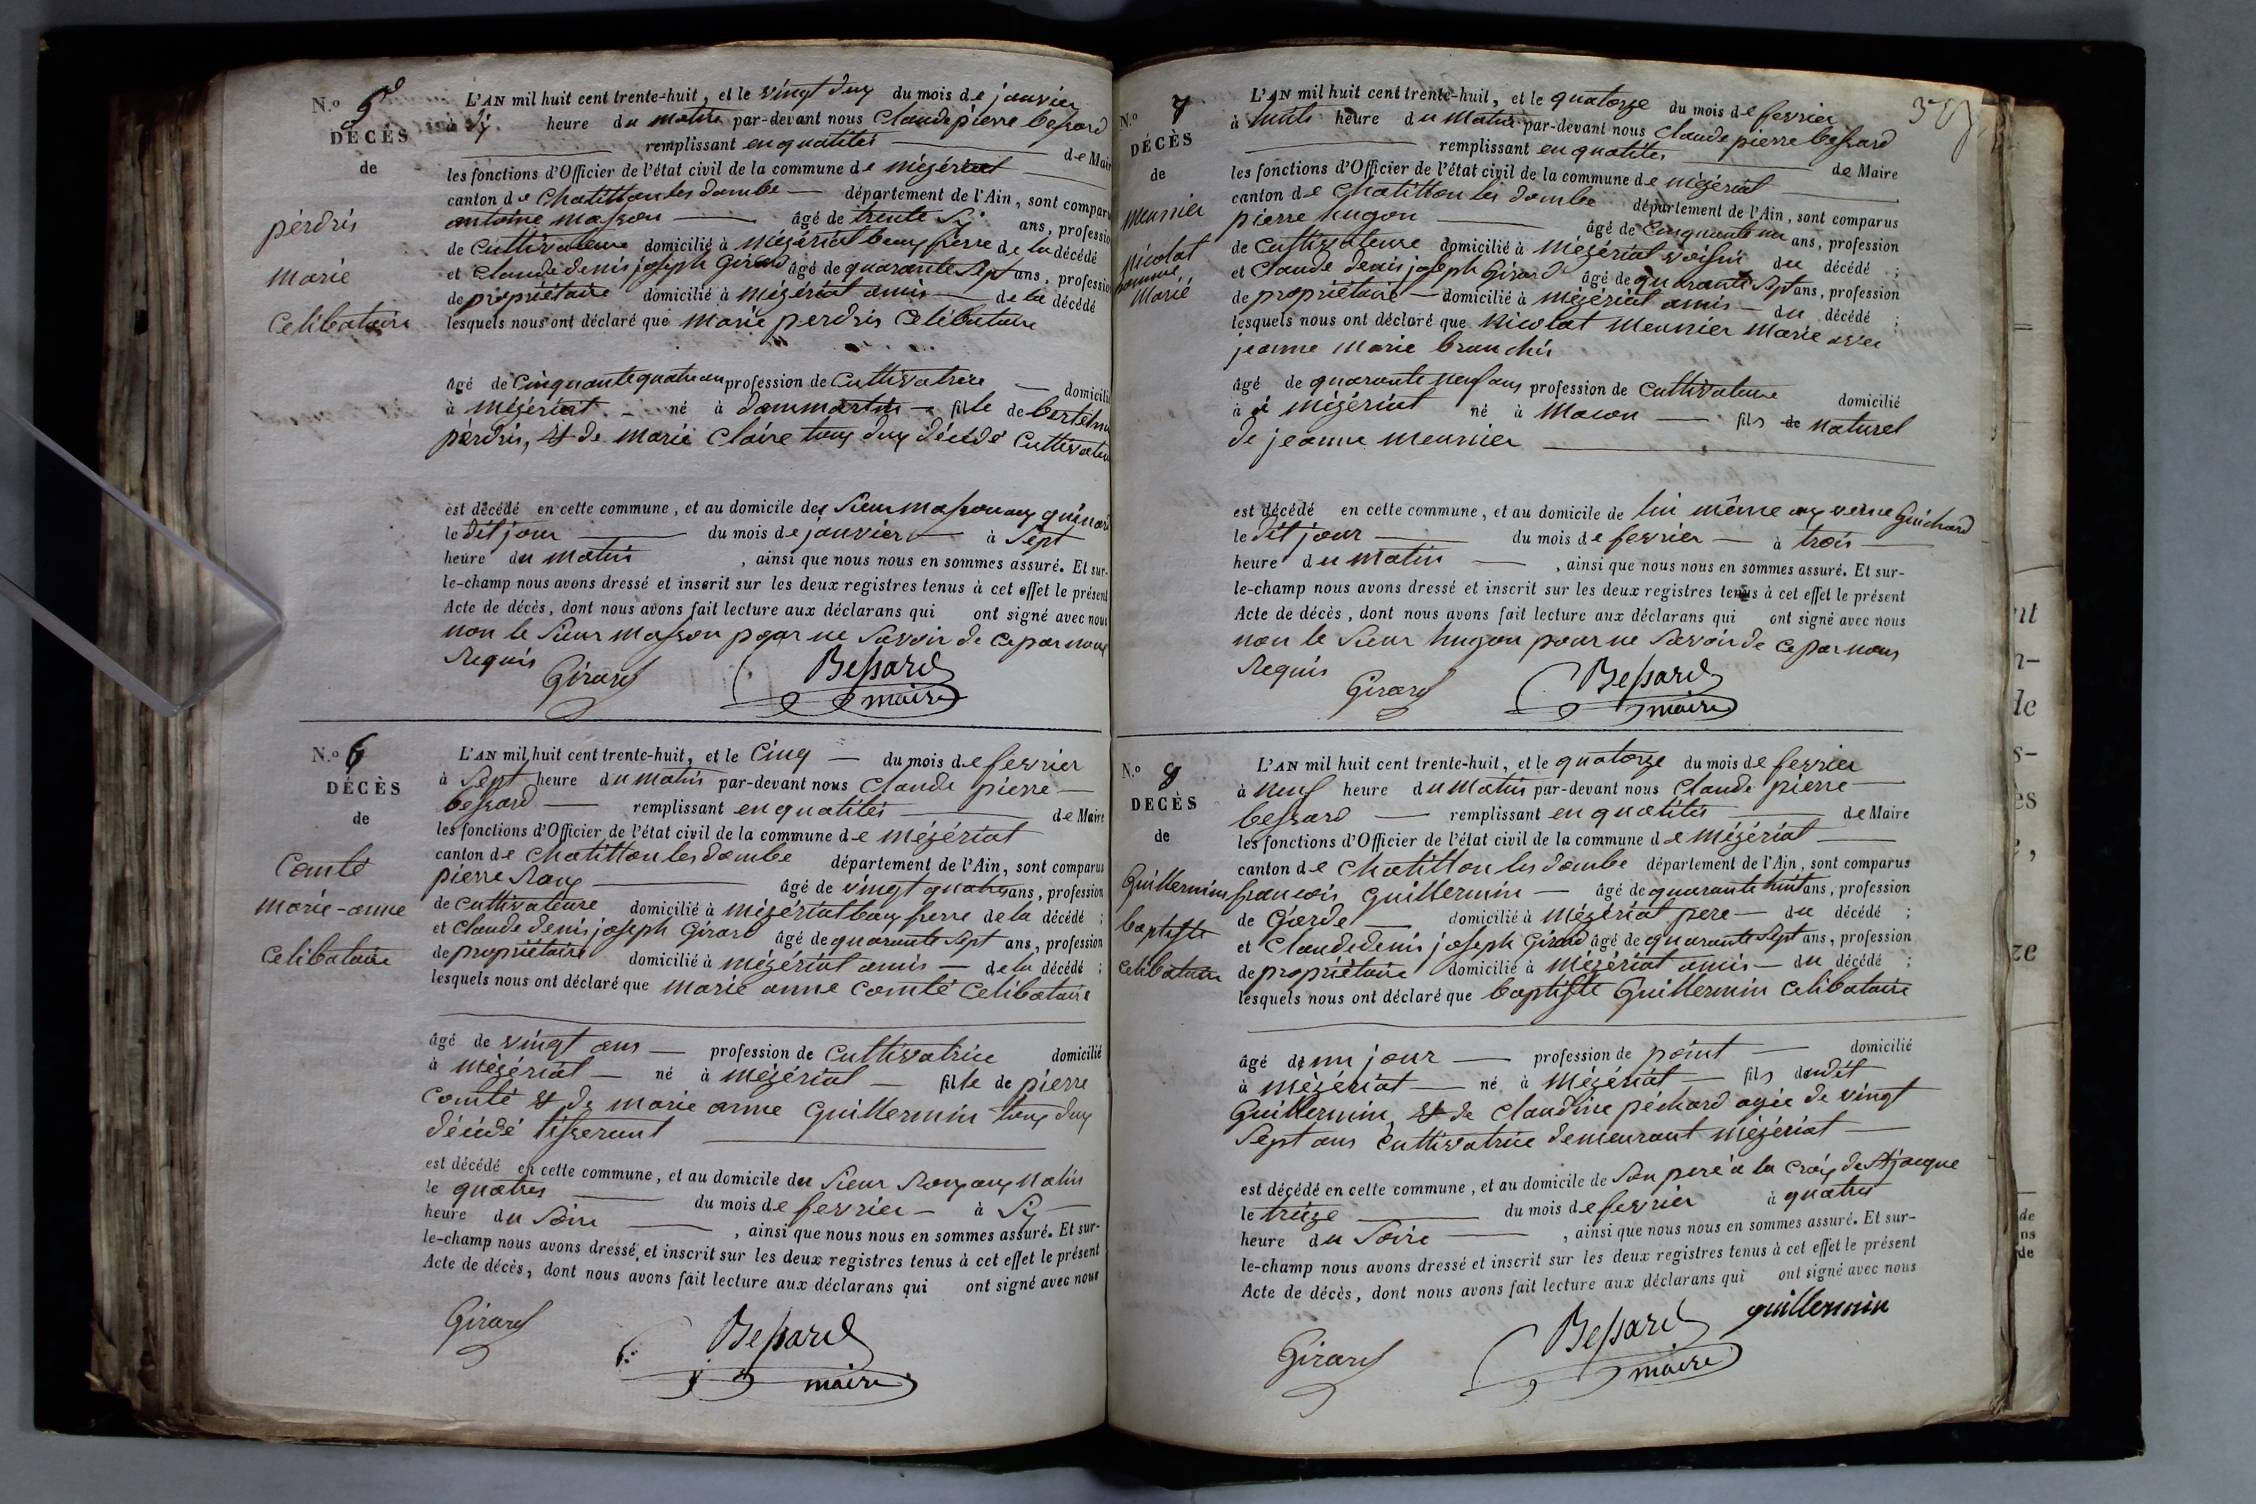 N.º 5
DÉCÈS
de
perdrix
marie
Celibataire
L'AN mil huit cent trente-huit, et le vingt duy du mois de janvier
à Sy heure du matin par-devant nous Claude pierre bessard
remplissant en qualités de Maire
les fonctions d'Officier de l'état civil de la commune de mézériat
canton de Chatillon les dombe département de l'Ain, sont comparus
antoine masson âgé de trente Sy ans, profession
de Cultivateure domicilié à mézériat beauy frerre de la décédé
et Claude denis joseph Girard âgé de quarante Sept ans, profession
de propriétaire domicilié à mézériat amis de la décédé
lesquels nous ont déclaré que marie perdrix Celibataire
âgé de Cinquante quatre an profession de Cultivatrice domicilié
à mézériat né à dommartin fille de
perdrix, et de marie Claire touy duy décédé Cultivateur
est décédé en cette commune, et au domicile des Sieur masson auy
le dit jour du mois de janvier à Sept
heure du matin, ainsi que nous nous en sommes assuré. Et sur-
le-champ nous avons dressé et inscrit sur les deux registres tenus à cet effet le présent
Acte de décès, dont nous avons fait lecture aux déclarans qui ont signé avec nous
non le Sieur masson pour ne Savoir de Ce par nous
Requis Girard Bessard
maire
N.º 6
DÉCÈS
de
Comté
marie-anne
Celibataire
L'AN mil huit cent trente-huit, et le Cinq du mois de fevrier
à Sept heure du matin par-devant nous Claude pierre
bessard remplissant en qualités de Maire
les fonctions d'Officier de l'état civil de la commune de mézériat
canton de Chatillon les dombe département de l'Ain, sont comparus
pierre Rouy âgé de vingt quatre ans, profession
de Cultivateure domicilié à mézériat bauy frerre de la décédé ;
et Claude denis joseph Girard âgé de quarante Sept ans, profession
de propriétaire domicilié à mézériat amis de la décédé ;
lesquels nous ont déclaré que marie anne Comté Celibataire
âgé de vingt ans profession de Cultivatrice domicilié
à mézériat né à mézériat fille de pierre
Comté et de marie anne Guillermin touy duy
décédé tisserant
est décédé en cette commune, et au domicile du Sieur Rouy auy matis
le quatres du mois de fevrier à Sy
heure du Soire, ainsi que nous nous en sommes assuré. Et sur-
le-champ nous avons dressé et inscrit sur les deux registres tenus à cet effet le présent
Acte de décès, dont nous avons fait lecture aux déclarans qui ont signé avec nous
Girard Bessard
maire
N.º 7
DÉCÈS
de
meunier
nicolat
homme
Marié
L'AN mil huit cent trente-huit, et le quatorze du mois de fevrier
à huits heure du matin par-devant nous Claude pierre bessard
remplissant en qualités de Maire
les fonctions d'Officier de l'état civil de la commune de mézériat
canton de Chatillon les dombe département de l'Ain, sont comparus
pierre hugon âgé de Cinquante un ans, profession
de Cultivateure domicilié à mézériat voisin du décédé ;
et Claude denis joseph Girard âgé de quarante Sept ans, profession
de propriétaire domicilié à mézériat amis du décédé ;
lesquels nous ont déclaré que nicolat meunier marié avec
jeanne marie branchis
âgé de quarante neuf ans profession de Cultivateure domicilié
à mézériat né à macon fils de naturel
de jeanne meunier
est décédé en cette commune, et au domicile de lui même auy verne Guichard
le dit jour du mois de fevrier à trois
heure du matin, ainsi que nous nous en sommes assuré. Et sur-
le-champ nous avons dressé et inscrit sur les deux registres tenus à cet effet le présent
Acte de décès, dont nous avons fait lecture aux déclarans qui ont signé avec nous
non le Sieur hugon pour ne Savoir de Ce par nous
Requis Girard Bessard
maire
N.º 8
DÉCÈS
de
Guillermin
baptiste
Celibataire
L'AN mil huit cent trente-huit, et le quatorze du mois de fevrier
à neuf heure du matin par-devant nous Claude pierre
bessard remplissant en qualités de Maire
les fonctions d'Officier de l'état civil de la commune de mézériat
canton de Chatillon les dombe département de l'Ain, sont comparus
francois Guillermin âgé de quarante huit ans, profession
de Garde domicilié à mézériat pere du décédé ;
et Claude denis joseph Girard âgé de quarante Sept ans, profession
de propriétaire domicilié à mézériat amis du décédé ;
lesquels nous ont déclaré que baptiste Guillermin Celibataire
âgé de un jour profession de point domicilié
à mézériat né à mézériat fils dudit
Guillermin, et de Claudine péchard agée de vingt
Sept ans Cultivatrice demeurant mézériat
est décédé en cette commune, et au domicile de Son pere a la Croiy de St jacque
le treize du mois de fevrier à quatres
heure du Soire, ainsi que nous nous en sommes assuré. Et sur-
le-champ nous avons dressé et inscrit sur les deux registres tenus à cet effet le présent
Acte de décès, dont nous avons fait lecture aux déclarans qui ont signé avec nous
Girard Bessard guillermin
maire